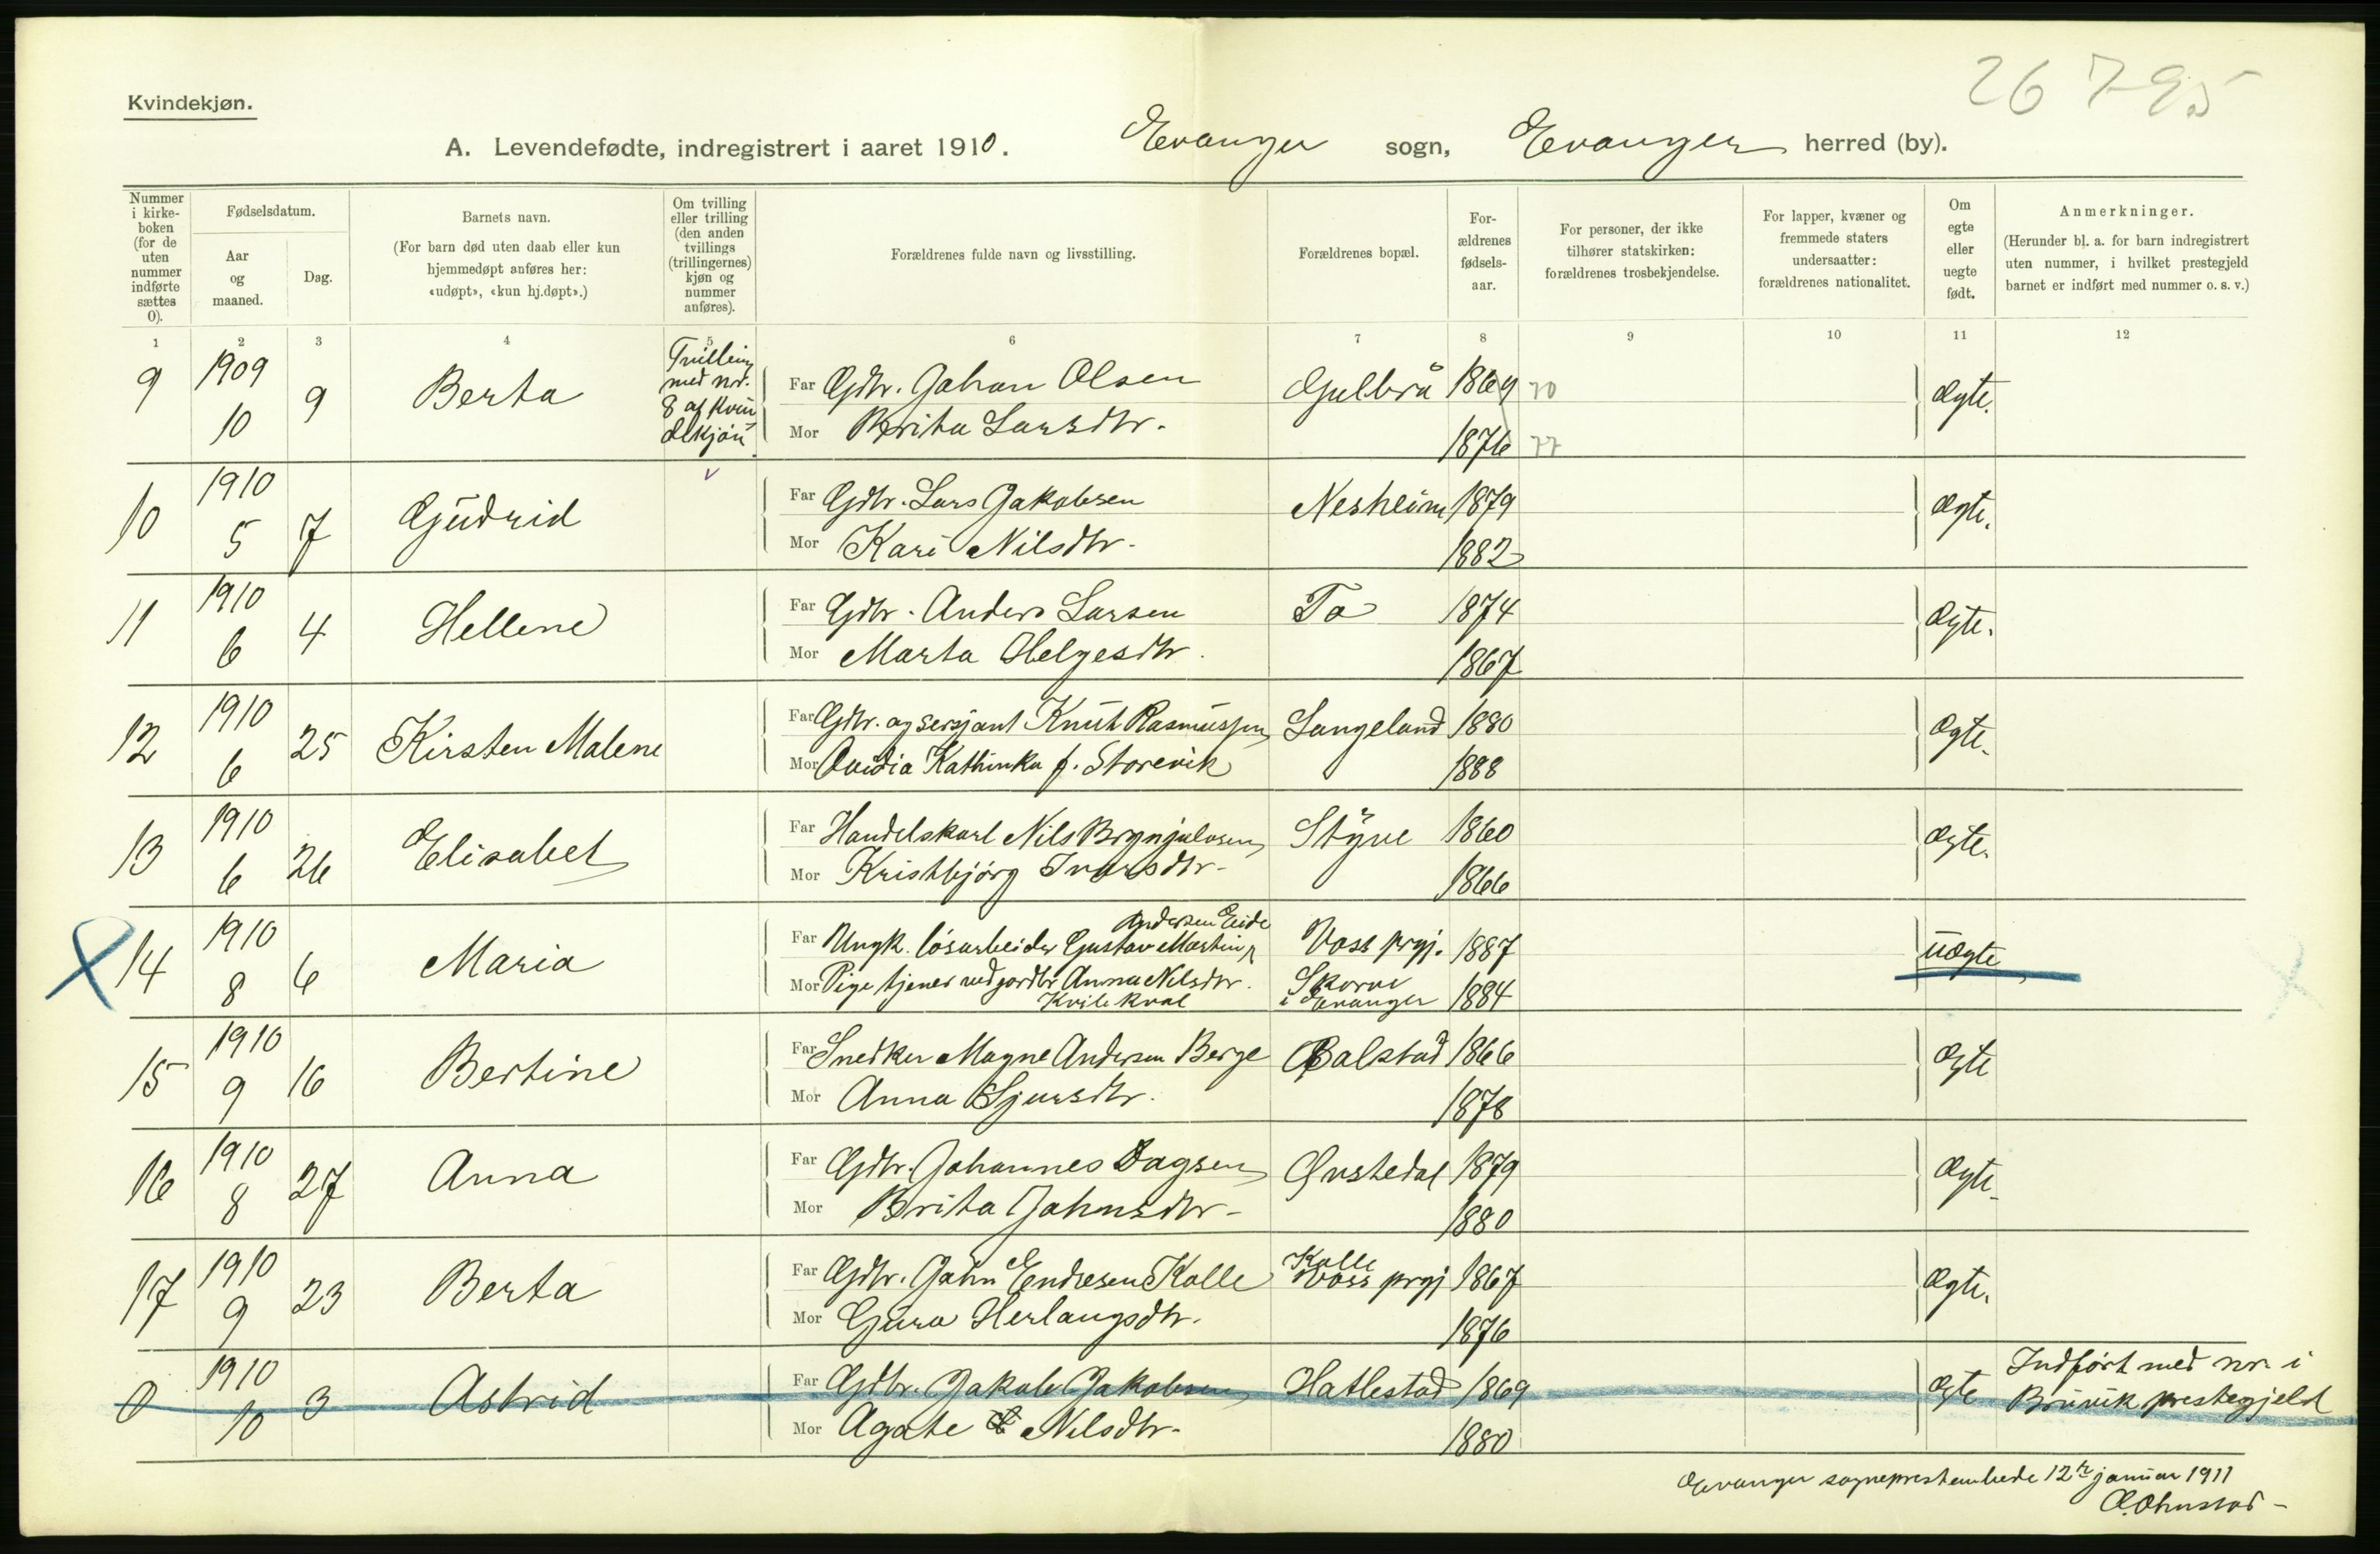 26 795
Kvindekjøn.
A. Levendefødte, indregistrert i aaret 1910. Evanger sogn, Evanger herred (by).
Nummer i kirke-boken (for de uten nummer indførte sættes 0).
Fødselsdatum.
Aar og maaned.
Dag.
Barnets navn.
(For barn død uten daab eller kun hjemmedøpt anføres her: «udøpt», «kun hj.døpt».)
Om tvilling eller trilling (den anden tvillings (trillingernes) kjøn og nummer anføres).
Forældrenes fulde navn og livsstilling.
Forældrenes bopæl.
For-ældrenes fødsels-aar.
For personer, der ikke tilhører statskirken: forældrenes trosbekjendelse.
For lapper, kvæner og fremmede staters undersaatter: forældrenes nationalitet.
Om egte eller uegte født.
Anmerkninger.
(Herunder bl. a. for barn indregistrert uten nummer, i hvilket prestegjeld barnet er indført med nummer o. s. v.)
1 2 3 4 5 6 7 8 9 10 11 12
9 1909 10 9 Berta Tvilling med nr. 8 af Kvindekjøn
Far Gdbr. Johan Olsen Gulbrå 1869 70 ægte.
Mor Brita Larsdtr. 1876 77
10 1910 5 7 Gudrid
Far Gdbr. Lars Jakobsen Nesheim 1879 ægte.
Mor Kari Nilsdtr. 1882
11 1910 6 4 Hellene
Far Gdbr. Anders Larsen Tø 1874 ægte.
Mor Marta Helgesdtr. 1867
12 1910 6 25 Kirsten Malene
Far Gdbr. og sersjant Knut Rasmussen Langeland 1880 ægte.
Mor Ovidia Kathinka f. Storevik 1888
13 1910 6 26 Elisabet
Far Handelskarl Nils Brynjulvsen Styve 1860 ægte.
Mor Kristbjørg Ivarsdtr. 1866
14 1910 8 6 Maria
Far Ungk. løsarbeider Gustav Martin Andersen Eide Voss prgj. 1887 uægte
Mor Pige tjener ved gardbr Anna Nilsdtr. Kvilekval Skorve i Evanger 1884
15 1910 9 16 Bertine
Far Snedker Magne Andersen Berge Bolstad 1866 ægte
Mor Anna Sjursdtr. 1878
16 1910 8 27 Anna
Far Gdbr. Johannes Dagsen Øvstedal 1879 ægte.
Mor Brita Johnsdtr. 1880
17 1910 9 23 Berta
Far Gdbr. John Endresen Kolle Kolle Voss prgj 1867 ægte.
Mor Guro Herlaugsdtr. 1876
0 1910 10 3 Astrid
Far Gdbr. Jakob Jakobsen Hatlestad 1869 ægte Indført med nr. i Bruvik prestegjeld
Mor Agate Nilsdtr. 1880
Evanger sogneprestembede 12te januar 1911
O. Ohnstad